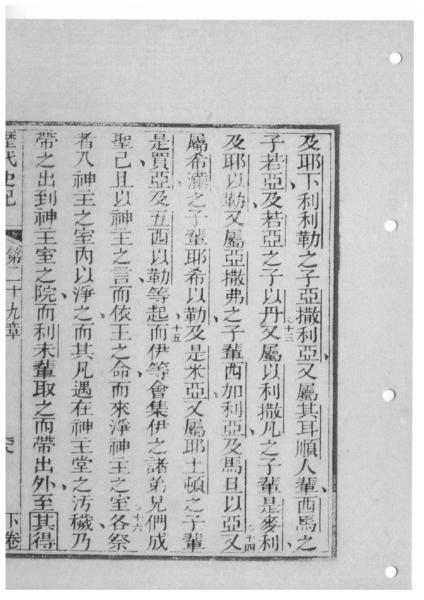 及耶下利利勒之子亞撒利亞又屬其耳順人輩西馬之
子若亞及若亞之子以丹又屬以利撒凡之子輩是麥利
十三
及耶以勒又屬亞撒弗之子輩西加利亞及馬旦以亞又
十四
屬希慢之子輩耶希以勒及是米亞又屬耶土頓之子輩
是買亞及五西以勒等起而伊等會集伊之諸弟兄們成
十五
聖己且以神王之言而依王之命而來淨神王之室各祭
者入神王之室內以淨之而其凡遇在神王堂之汚穢乃
十六
帶之出到神王室之院而利未輩取之而帶出外至其得
歷代史記
第二十九章
下卷